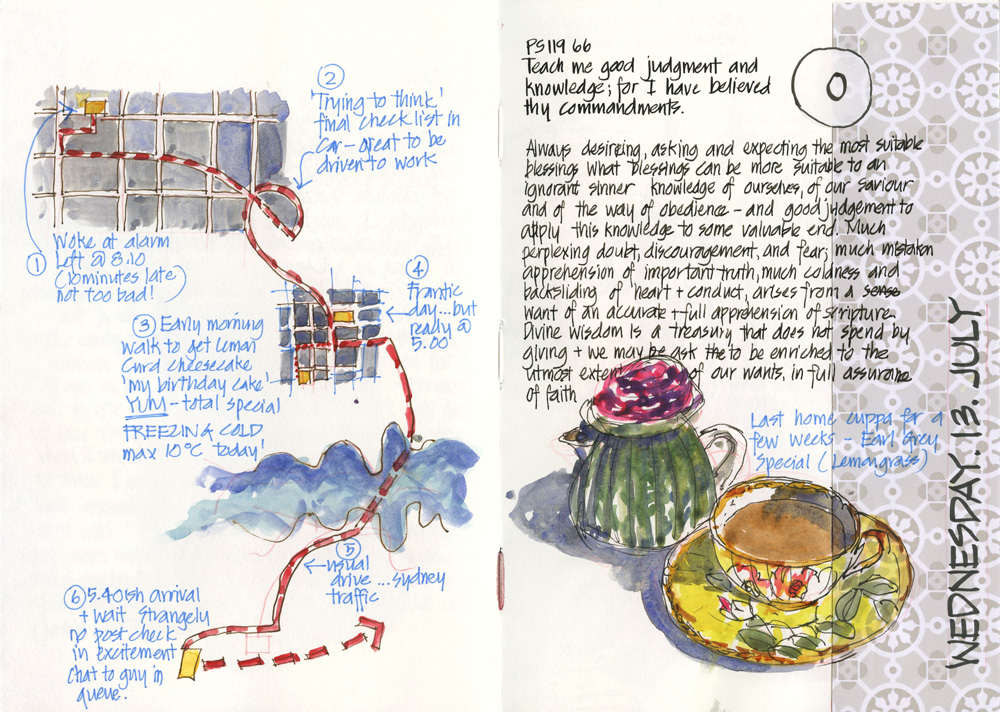 ②
'Trying to think'
final check list in
car - great to be
driven to work
①
Woke at alarm
Left @ 8:10
(10 minutes late)
not too bad!
③ Early morning
walk to get lemon
curd cheesecake
'my birthday cake'
YUM - total special
FREEZING & COLD
max 10°C today!
④
Frantic
day...but
ready @
5.00
⑤
usual
drive...sydney
traffic
⑥ 5.40ish arrival
+ wait strangely
no post check
in excitement
chat to guy in
queue.
PS 119 66
Teach me good judgment and
knowledge; for I have believed
thy commandments.
0
Always desireing, asking and expecting the most suitable
blessings What blessings can be more suitable to an
ignorant sinner knowledge of ourselves, of our saviour
and of the way of obedience - and good judgement to
apply this knowledge to some valuable end. Much
perplexing doubt, discouragement, and fear; much mistaken
apprehension of important truth, much coldness and
backsliding of heart + conduct, arises from a sense
want of an accurate + full apprehension of scripture.
Divine wisdom is a treasury that does not spend by
giving + we may be ask the to be enriched to the
utmost exten of our wants, in full assurance
of faith
Last home cuppa for a
few weeks - Earl Grey
Special (Lemongrass)
WEDNESDAY. 13. JULY